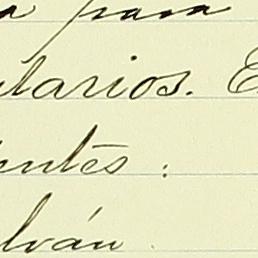 a para
larios. E
entes:
lván